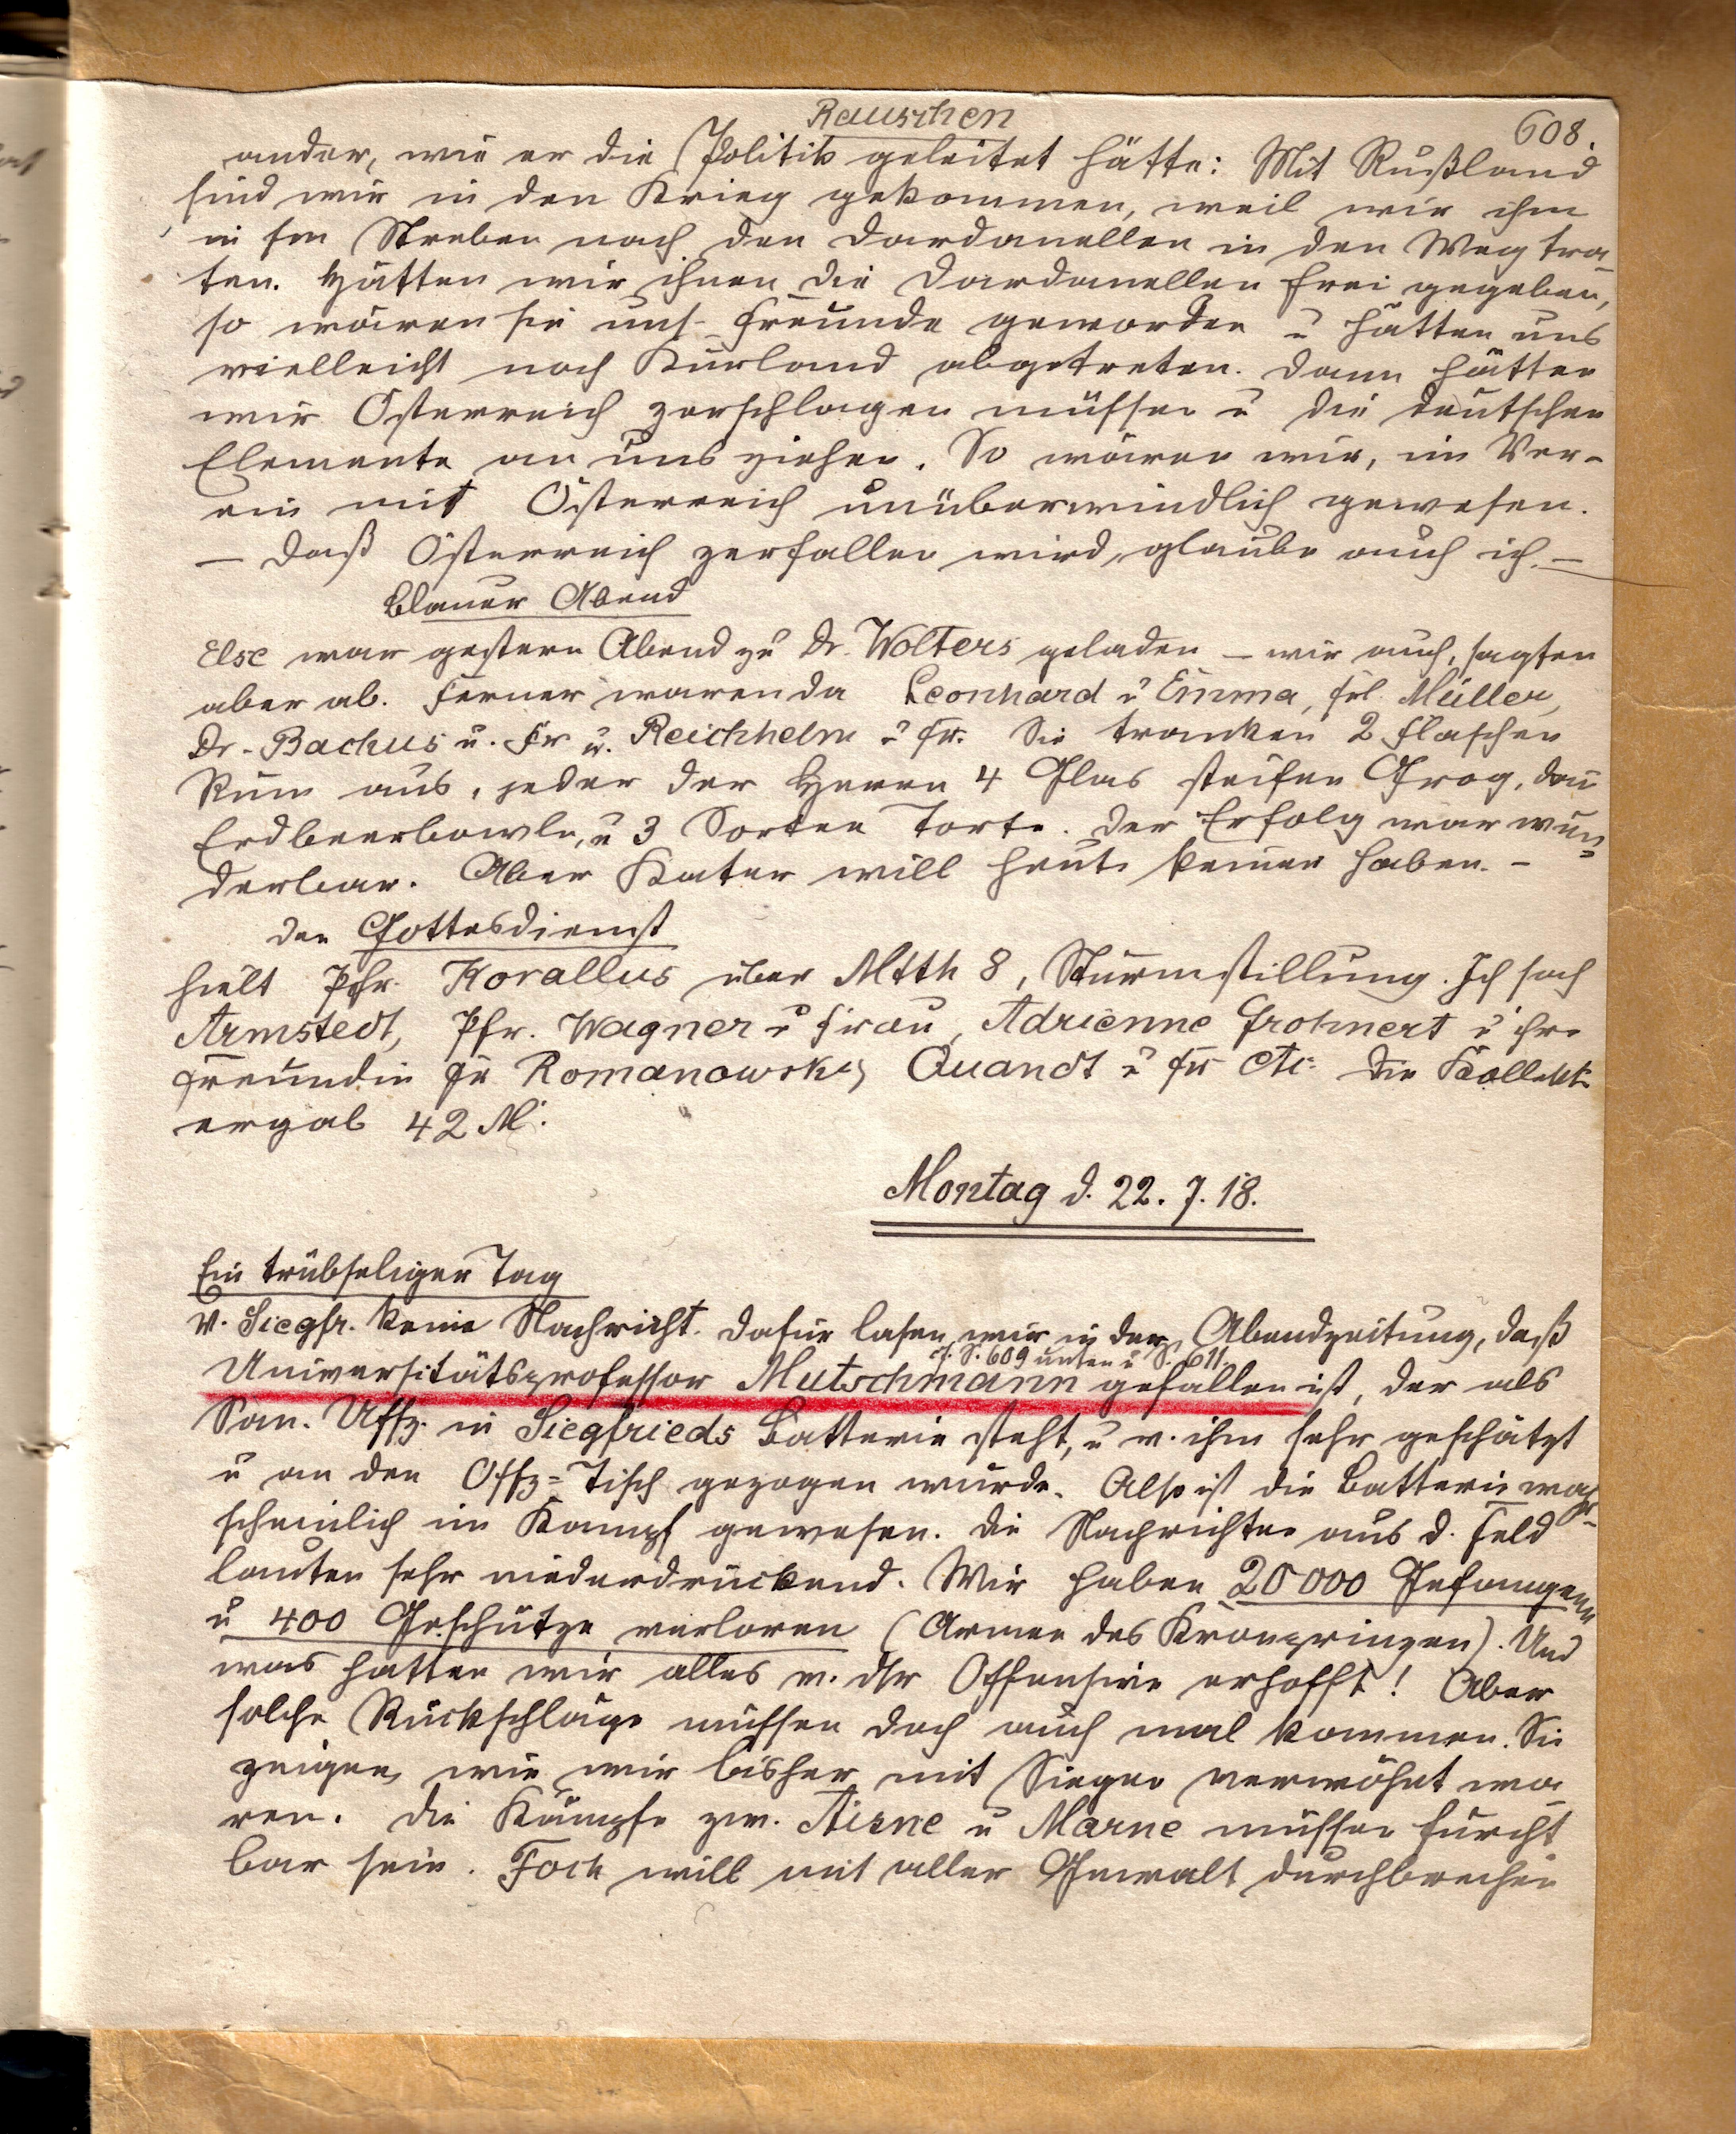 Rauschen
608.
ander, wie er die Politik geleitet hätte: Mit Rußland
sind wir in den Krieg gekommen, weil wir ihm
in sm Streben nach den Dardanellen in den Weg tra-
ten. Hätten wir ihnen die Dardanellen frei gegeben,
so wären sie uns Freunde geworden u hätten uns
vielleicht noch Kurland abgetreten. Dann hätten
wir Österreich zerschlagen müssen u die deutschen
Elemente an uns ziehen. So wären wir, im Ver-
ein mit Österreich unüberwindlich gewesen.
– Daß Österreich zerfallen wird, glaube auch ich. –
Blauer Abend
Else war gestern Abend zu Dr. Wolters geladen – wir auch, sagten
aber ab. Ferner waren da Leonhard u Emma, Frl. Müller,
Dr. Backus u. Fr u. Reichhelm u Fr. Sie tranken 2 Flaschen
Rum aus, jeder der Herren 4 Glas steifen Grog, dann
Erdbeerbowle, u 3 Sorten Torte. Der Erfolg war wun-
derbar. Aber Kater will heute keiner haben. –
Den Gottesdienst
hielt Pfr. Korallus über Mtth 8, Sturmstillung. Ich sah
Armstedt, Pfr. Wagner u Frau, Adrienne Grohnert u ihre
Freundin Frl Romanowski, Quandt u Fr etc. Die Kollekte
ergab 42 M.
Montag d. 22. 7. 18.
Ein trübseliger Tag
V. Siegfr. keine Nachricht. Dafür lasen wir in der Abendzeitung, daß
cf. S. 609 unten u S. 611.
Universitätsprofessor Mutschmann gefallen ist, der als
San. Uffz. in Siegfrieds Batterie steht, u v. ihm sehr geschätzt
u an den Offz=Tisch gezogen wurde. Also ist die Batterie wahr-
scheinlich im Kampf gewesen. Die Nachrichten aus d. Feld
lauten sehr niederdrückend. Wir haben 20000 Gefangene
u 400 Geschütze verloren (Armee des Kronprinzen). Und
was hatten wir alles v. dsr Offensive erhofft! Aber
solche Rückschläge müssen doch auch mal kommen. Sie
zeigen, wie wir bisher mit Siegen verwöhnt wa
ren. Die Kämpfe zw. Aisne u Marne müssen furcht
bar sein. Foch will mit aller Gewalt durchbrechen